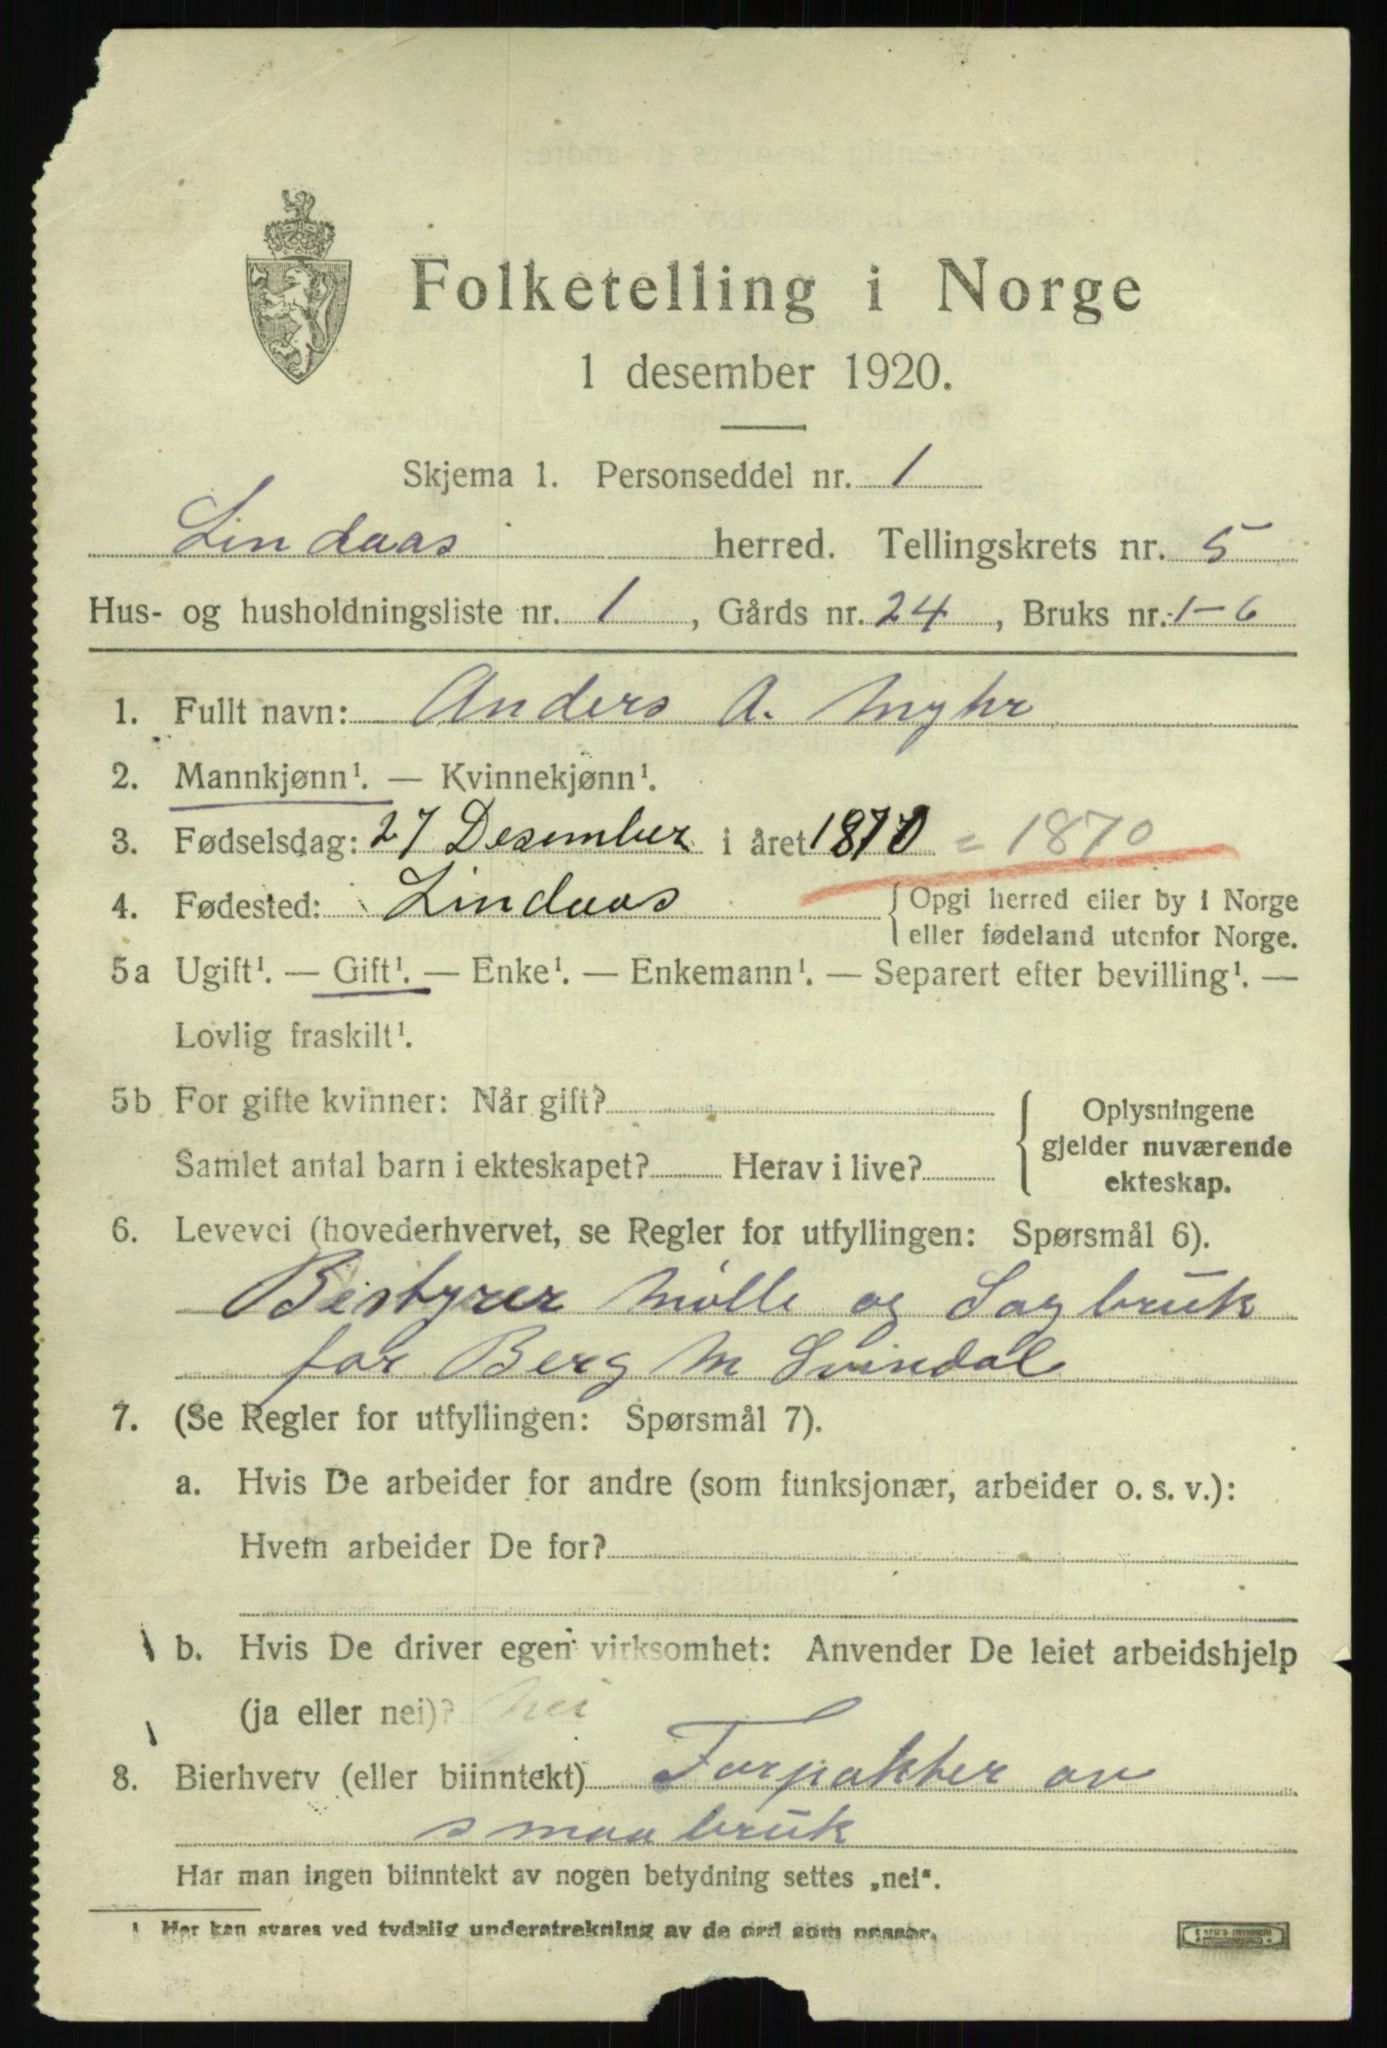 Folketelling i Norge
1 desember 1920.
Skjema 1. Personseddel nr. 1
Lindaas herred. Tellingskrets nr. 5
Hus- og husholdningsliste nr. 1, Gårds nr. 24, Bruks nr. 1-6
1. Fullt navn: Anders A. Myhr
2. Mannkjønn¹. — Kvinnekjønn¹.
3. Fødselsdag: 27 Desember i året 1870 = 1870
4. Fødested: Lindaas { Opgi herred eller by i Norge
eller fødeland utenfor Norge.
5a Ugift¹. — Gift¹. — Enke¹. — Enkemann¹. — Separert efter bevilling¹. —
Lovlig fraskilt¹.
5b For gifte kvinner: Når gift?
Samlet antal barn i ekteskapet? Herav i live?
Oplysningene
gjelder nuværende
ekteskap.
6. Levevei (hovederhvervet, se Regler for utfyllingen: Spørsmål 6).
Bestyrer Mølle og Sagbruk
for Berg M Svindal
7. (Se Regler for utfyllingen: Spørsmål 7).
a. Hvis De arbeider for andre (som funksjonær, arbeider o. s. v.):
Hvem arbeider De for?
b. Hvis De driver egen virksomhet: Anvender De leiet arbeidshjelp
(ja eller nei)? Nei
8. Bierhverv (eller biinntekt) Forpakter av
smaabruk
Har man ingen biinntekt av nogen betydning settes „nei“.
1 Her kan svares ved tydelig understrekning av de ord som passer.